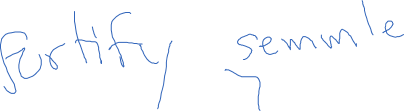 fortify semmle